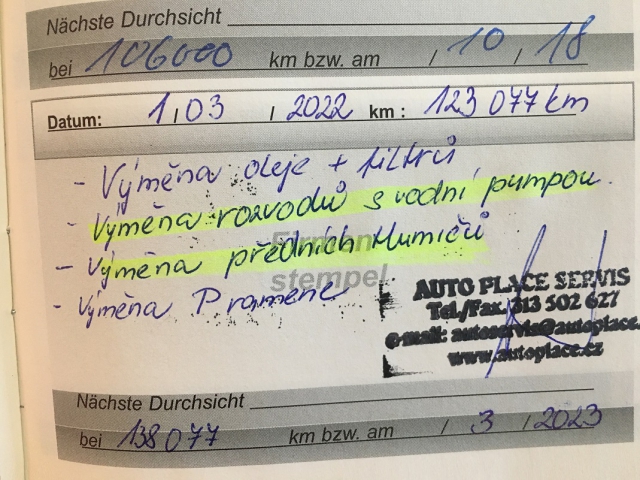 Nächste Durchsicht
bei 106000 km bzw. am / 10 / 18
Datum: 1 / 03 / 2022 km : 123 077 km
- Výměna oleje + filtrů
- Výměna rozvodů s vodní pumpou
- Výměna předních tlumičů
Firmenstempel
- Výměna Pramene
AUTO PLACE SERVIS
Tel./Fax. 313 502 627
e-mail: autoservis@autoplace.
www.autoplace.cz
Nächste Durchsicht
bei 138 077 km bzw. am / 3 / 2023